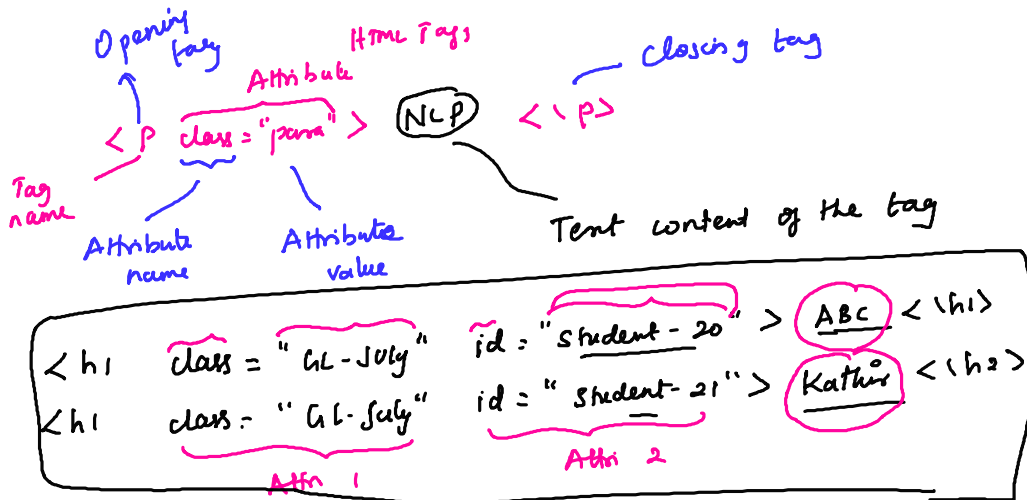 Opening tag
HTML Tags
Closing tag
Attribute
< P class = "para" > NLP < \ p>
Tag name
Attribute name
Attribute value
Text content of the tag
< h1 class = "GL-July" id = "Student-20" > ABC < \h1>
< h1 class = "GL-July" id = "Student-21" > Kathir < \h2>
Attri 1
Attri 2